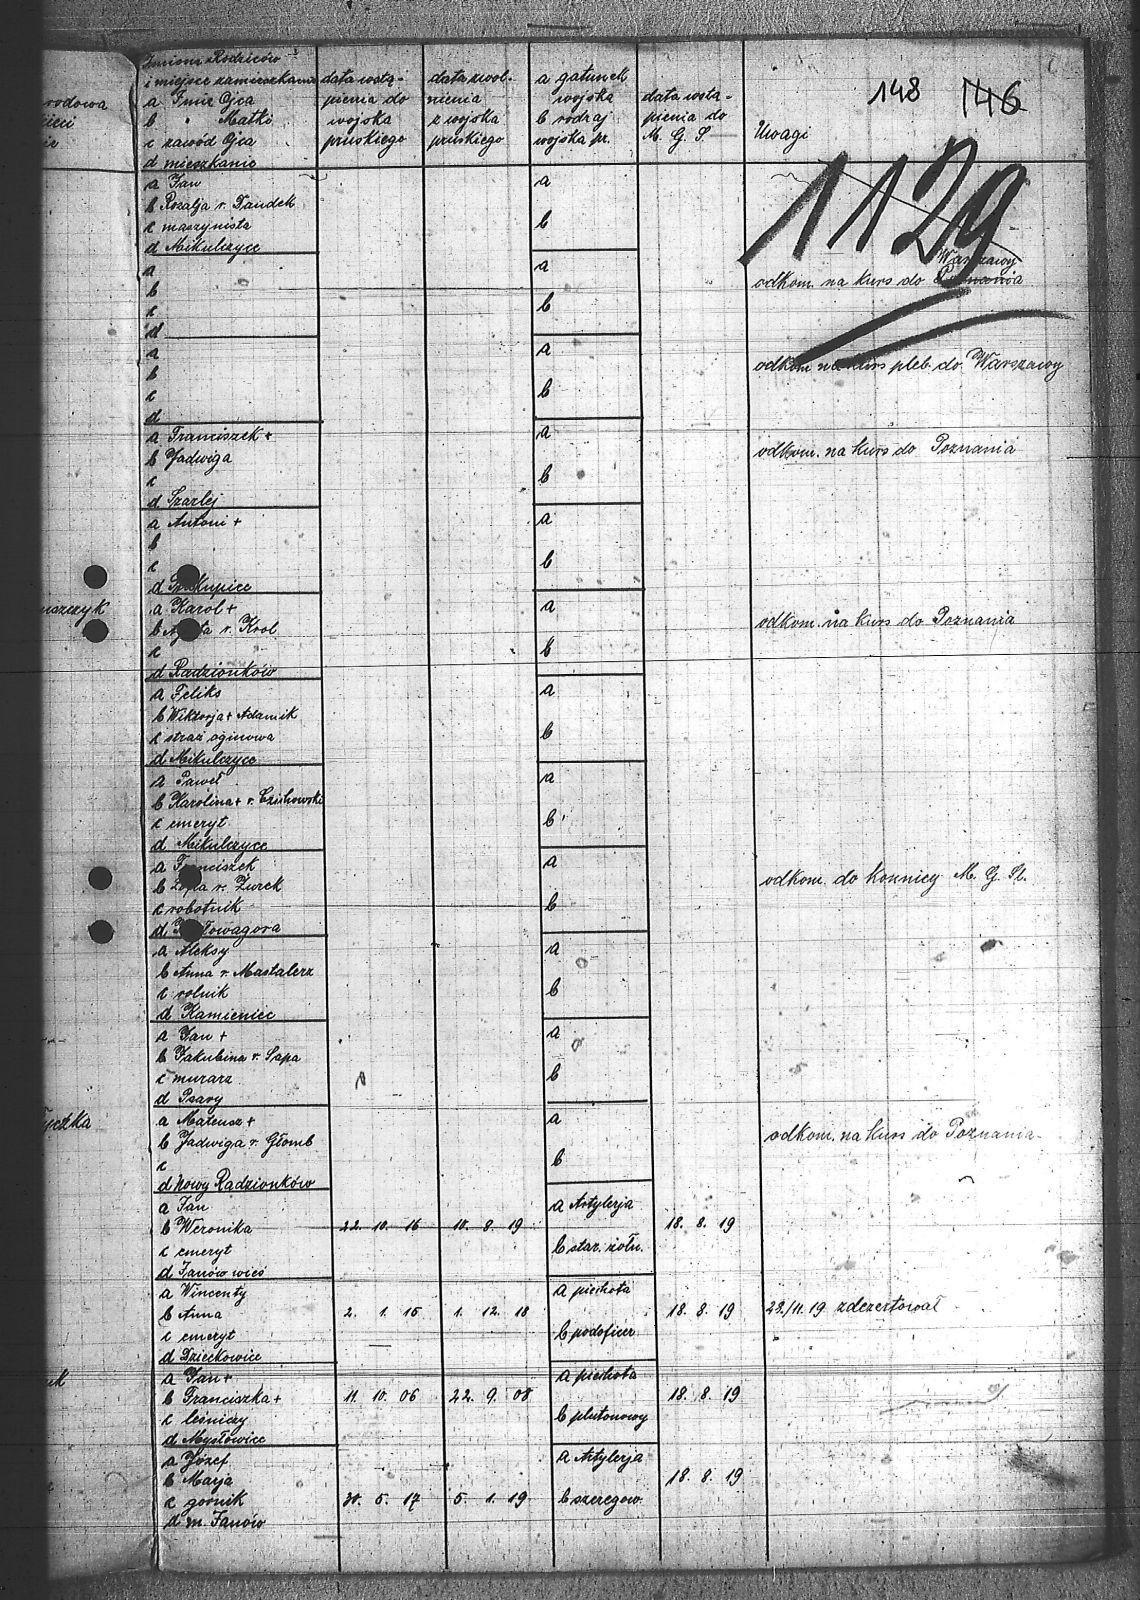 148 146
1129
Imiona Rodziców
i miejsce zamieszkania
a Imię Ojca
b " Matki
c zawód Ojca
d mieszkanie
data wstą-
pienia do
wojska
pruskiego
data zwol-
nienia
z wojska
pruskiego
a gatunek
wojska
b rodzaj
wojska pr.
data wstą-
pienia do
M. G. S.
Uwagi
rodowa
a Jan
b Rozalja r. Dandek
c maszynista
d Mikulczyce
a
b
a
b
c
d
a
b
Warszawy
odkom. na kurs do Poznania
a
b
c
d
a
b
odkom. na kurs pleb. do Warszawy
a Franciszek +
b Jadwiga
c
d Szarlej
a
b
odkom. na kurs do Poznania
a Antoni +
b
c
d
a
b
a Karol +
b r. Krol
c
d Radzionków
a
b
odkom. na kurs do Poznania
a Feliks
b Wiktorja + Adamik
c straż oginowa
d Mikulczyce
a
b
a Paweł
b Karolina + r. Czuchowski
c emeryt
d Mikulczyce
a
b
a Franciszek
b r. Żurek
c robotnik
d
a
b
odkom. do konnicy M. G. Śl.
a Aleksy
b Anna r. Mastalerz
c rolnik
d Kamieniec
a
b
a Jan +
b Jakubina r. Sapa
c murarz
d Psary
a
b
a Mateusz +
b Jadwiga r. Głomb
c
d Nowy Radzionków
a
b
odkom. na kurs do Poznania
a Jan
b Weronika
c emeryt
d Janów wieś
22. 10. 16
10. 8. 19
a Artylerja
b star. żołn.
18. 8. 19
a Wincenty
b Anna
c emeryt
d Dzieckowice
2. 1. 15
1. 12. 18
a piechota
b podoficer
18. 8. 19
28./11. 19 zdezertował
a Jan +
b Franciszka +
c leśniczy
d Mysłowice
11. 10. 06
22. 9. 08
a piechota
b plutonowy
18. 8. 19
a Józef
b Marja
c górnik
d m. Janów
30. 5. 17
5. 1. 19
a Artylerja
b szeregow.
18. 8. 19